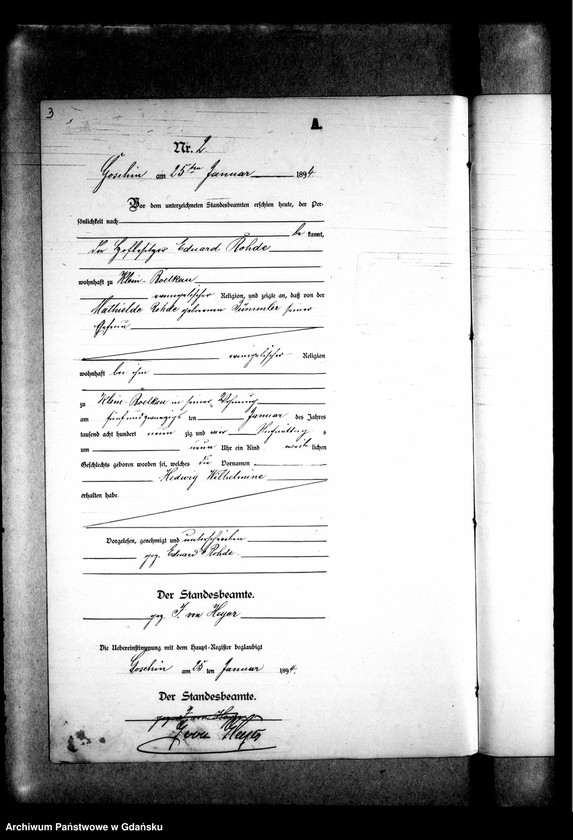 3
A.
Nr. 2.
Goschin am 25ten Januar 1894.
Vor dem unterzeichneten Standesbeamten erschien heute, der Per-
sönlichkeit nach
be kannt,
der Hofbesitzer Eduard Rohde
wohnhaft zu Klein-Roelkau
evangelischer Religion, und zeigte an, daß von der
Mathielde Rohde geborenen Kümmler seiner
Ehefrau
evangelischer Religion
wohnhaft bei ihm
zu Klein-Roelkau in seiner Wohnung
am fünfundzwanzigs ten Januar des Jahres
tausend acht hundert neun zig und vier Nachmittag s
um neun Uhr ein Kind weib lichen
Geschlechts geboren worden sei, welches die Vornamen
Hedwig Wilhelmine
erhalten habe.
Vorgelesen, genehmigt und unterschrieben
gez. Eduard Rohde.
Der Standesbeamte.
gez. J. von Heyer
Die Uebereinstimmung mit dem Haupt-Register beglaubigt
Goschin am 25 ten Januar 1894.
Der Standesbeamte.
von Heyer
Archiwum Państwowe w Gdańsku